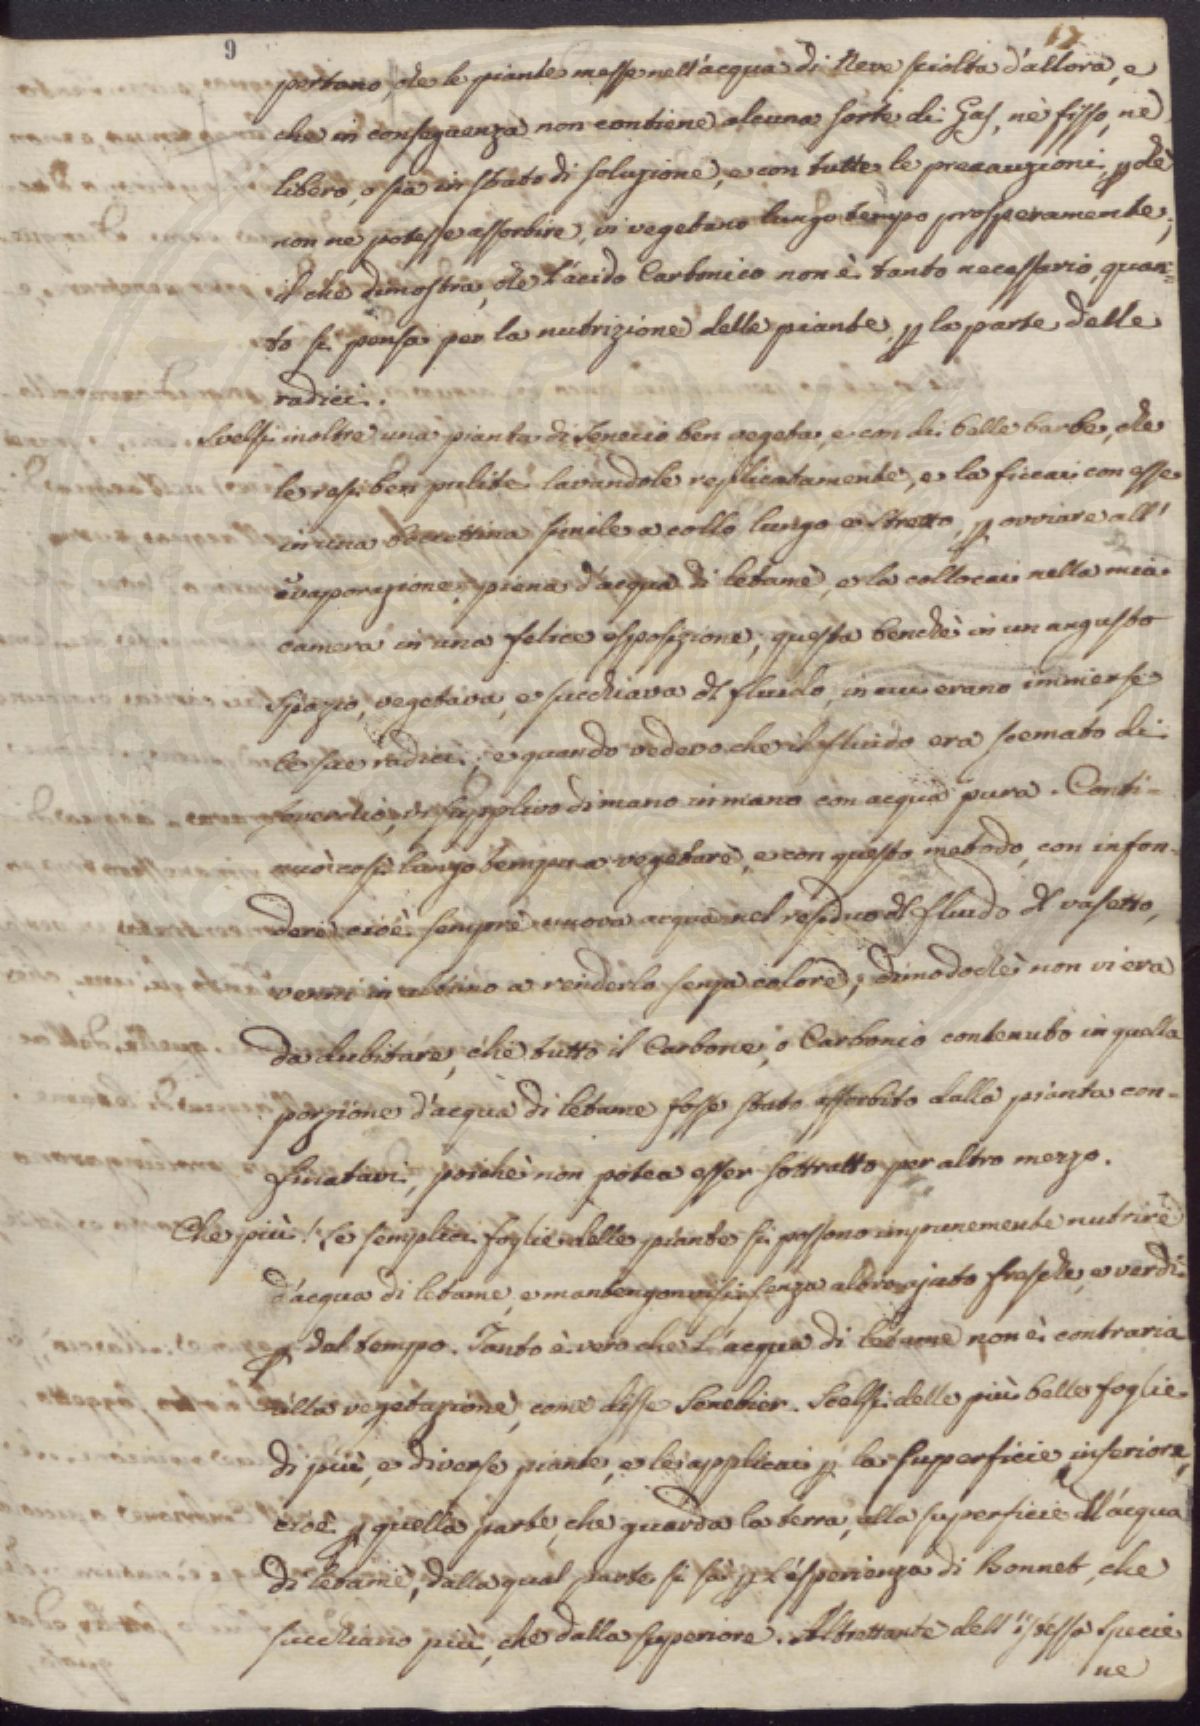 9 17
portano, che le piante messe nell'acqua di Neve sciolta d'allora, e
che in conseguenza non contiene alcuna sorte di Gas, nè fisso, nè
libero, o sia in stato di soluzione, e con tutte le precauzioni, pchè
non ne potesse assorbire, vi vegetano lungo tempo prosperamente;
il che dimostra, che l'acido Carbonico non è tanto necessario, quan=
to si pensa per la nutrizione delle piante, p la parte delle
radici.
Svelsi inoltre una pianta di Senecio ben vegeta, e con di belle barbe, che
le resi ben pulite lavandole replicatamente, e la ficcai con esse
in una boccettina simile a collo lungo e stretto, p ovviare all'
evaporazione, piena d'acqua di letame, e la collocai nella mia
camera in una felice esposizione; questa benchè in un angusto
spazio, vegetava, e succhiava dl fluido, in cui erano immerse
le sue radici; e quando vedevo che il fluido era scemato di
soverchio, vi supplivo di mano in mano con acqua pura. Conti=
nuò così lungo tempo a vegetare, e con questo metodo, con infon=
dere cioè sempre nuova acqua nel residuo dl fluido dl vasetto,
venni in ultimo a renderlo senza colore; dimodochè non vi era
da dubitare, che tutto il Carbone, o Carbonio contenuto in quella
porzione d'acqua di letame fosse stato assorbito dalla pianta con=
ficcatavi, poichè non potea esser sottratto per altro mezzo.
Che più! Le semplici foglie delle piante si possono impunemente nutrire
d'acqua di letame, e mantengonvisi senza altro ajuto fresche, e verdi
p del tempo. Tanto è vero che l'acqua di letame non è contraria
alla vegetazione, come disse Senebier. Scelsi delle più belle foglie
di più, e diverse piante, e le applicai p la superficie inferiore,
cioè p quella parte, che guarda la terra, alla superficie dll'acqua
di letame, dalla qual parte si sà p l'esperienza di Bonnet, che
succhiano più, che dalla superiore. Altrettante dell'istessa specie
ne